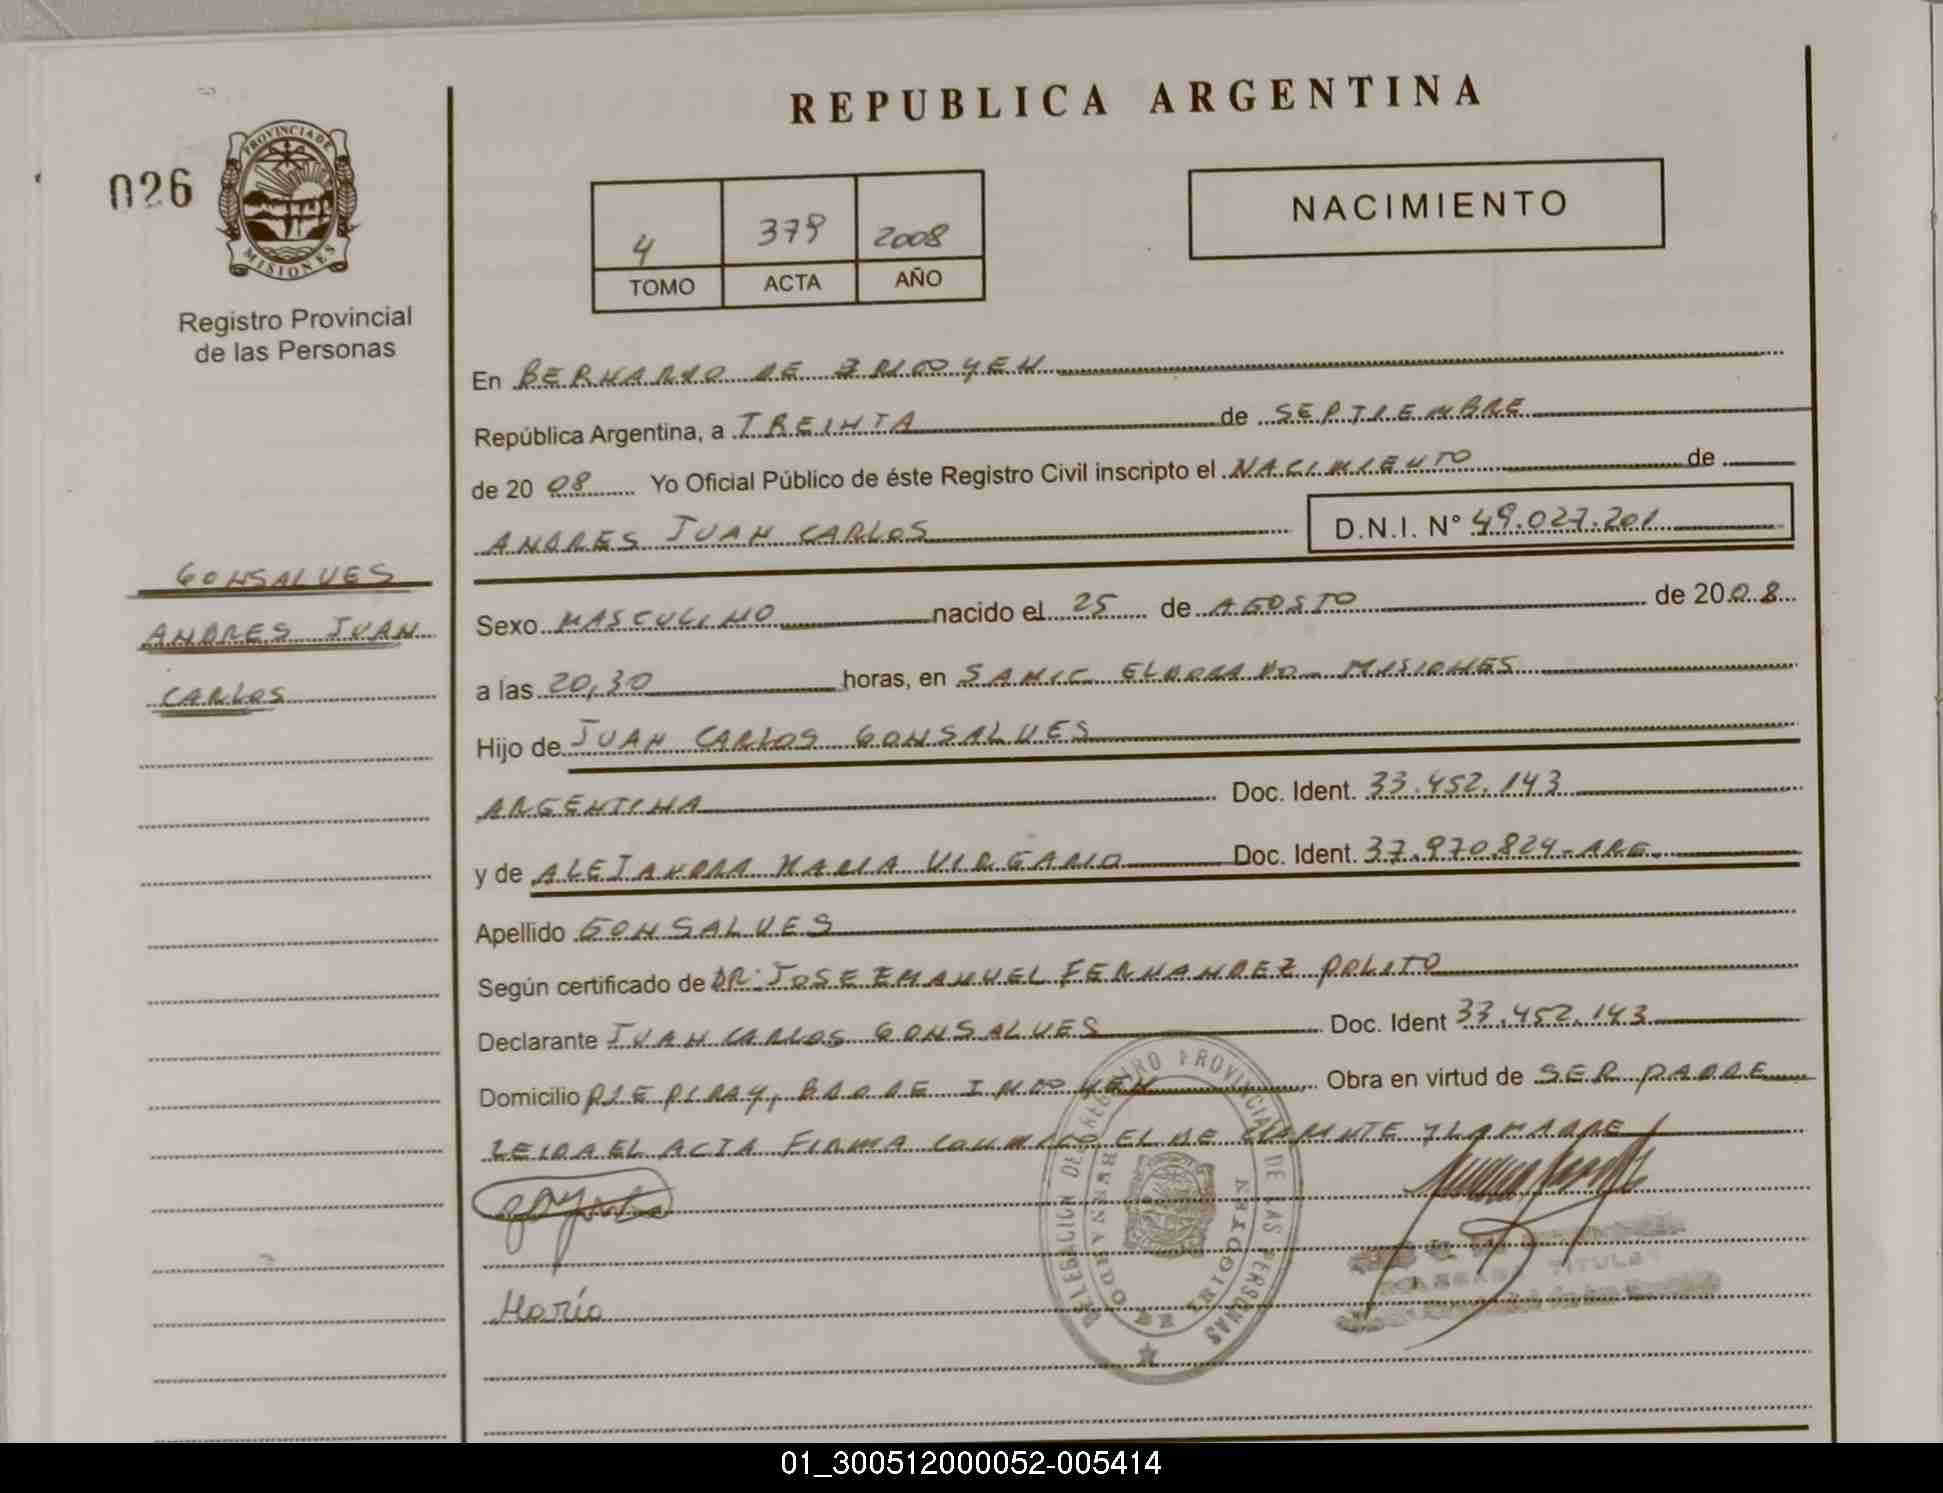 REPUBLICA ARGENTINA
026
PROVINCIA DE
MISIONES
Registro Provincial
de las Personas
4 379 2008
TOMO ACTA AÑO
NACIMIENTO
En BERNARDO DE IRIGOYEN
República Argentina, a TREINTA de SEPTIEMBRE
de 20 08 Yo Oficial Público de éste Registro Civil inscripto el NACIMIENTO de
ANDRES JUAN CARLOS D.N.I. N° 49.027.201
GONSALVES
ANDRES JUAN
CARLOS
Sexo MASCULINO nacido el 25 de AGOSTO de 2008
a las 20,30 horas, en SAMIC ELDORADO - MISIONES
Hijo de JUAN CARLOS GONSALVES
ARGENTINA Doc. Ident. 33.452.143
y de ALEJANDRA MARIA VIRGARIO Doc. Ident. 37.970.824-ARG.
Apellido GONSALVES
Según certificado de DR: JOSE EMANUEL FERNANDEZ POLITO
Declarante JUAN CARLOS GONSALVES Doc. Ident 33.452.143
Domicilio PJE PIRAY, BDO DE IRIGOYEN Obra en virtud de SER PADRE
LEIDA EL ACTA FIRMA CONMIGO EL DECLARANTE Y LA MADRE
María
DELEGACION DEL REGISTRO PROVINCIAL DE LAS PERSONAS
BERNARDO DE IRIGOYEN
TITULAR
01_300512000052-005414